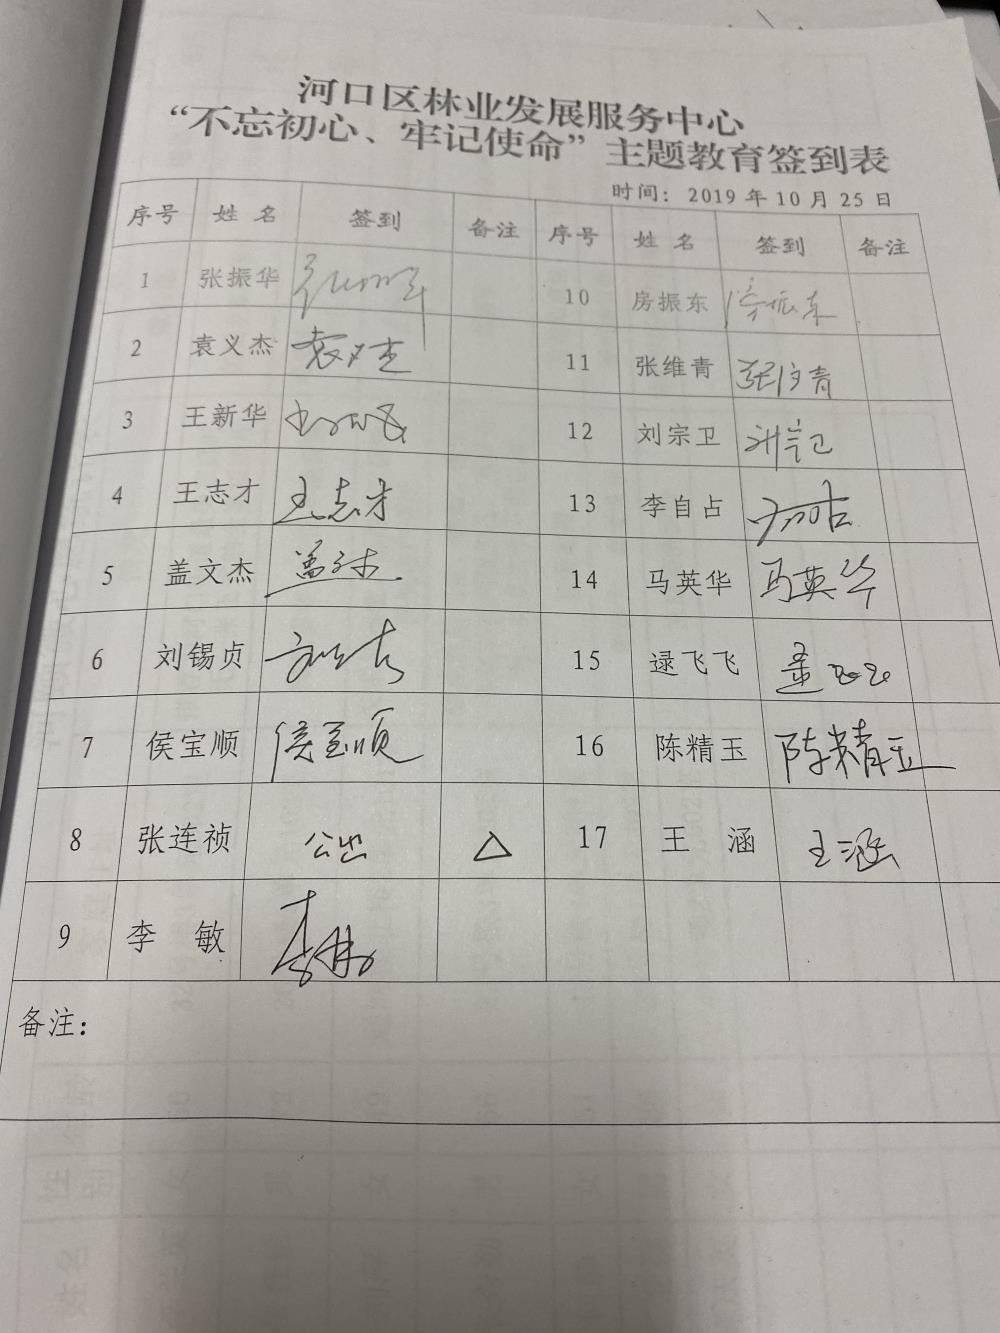 河口区林业发展服务中心
“不忘初心、牢记使命”主题教育签到表
时间：2019年10月25日
序号 姓名 签到 备注 序号 姓名 签到 备注
1 张振华 10 房振东 房振东
2 袁义杰 袁义杰 11 张维青 张维青
3 王新华 12 刘宗卫 刘宗卫
4 王志才 王志才 13 李自占
5 盖文杰 盖文杰 14 马英华 马英华
6 刘锡贞 15 逯飞飞 逯飞飞
7 侯宝顺 侯宝顺 16 陈精玉 陈精玉
8 张连祯 公出 △ 17 王 涵 王涵
9 李 敏 李敏
备注：